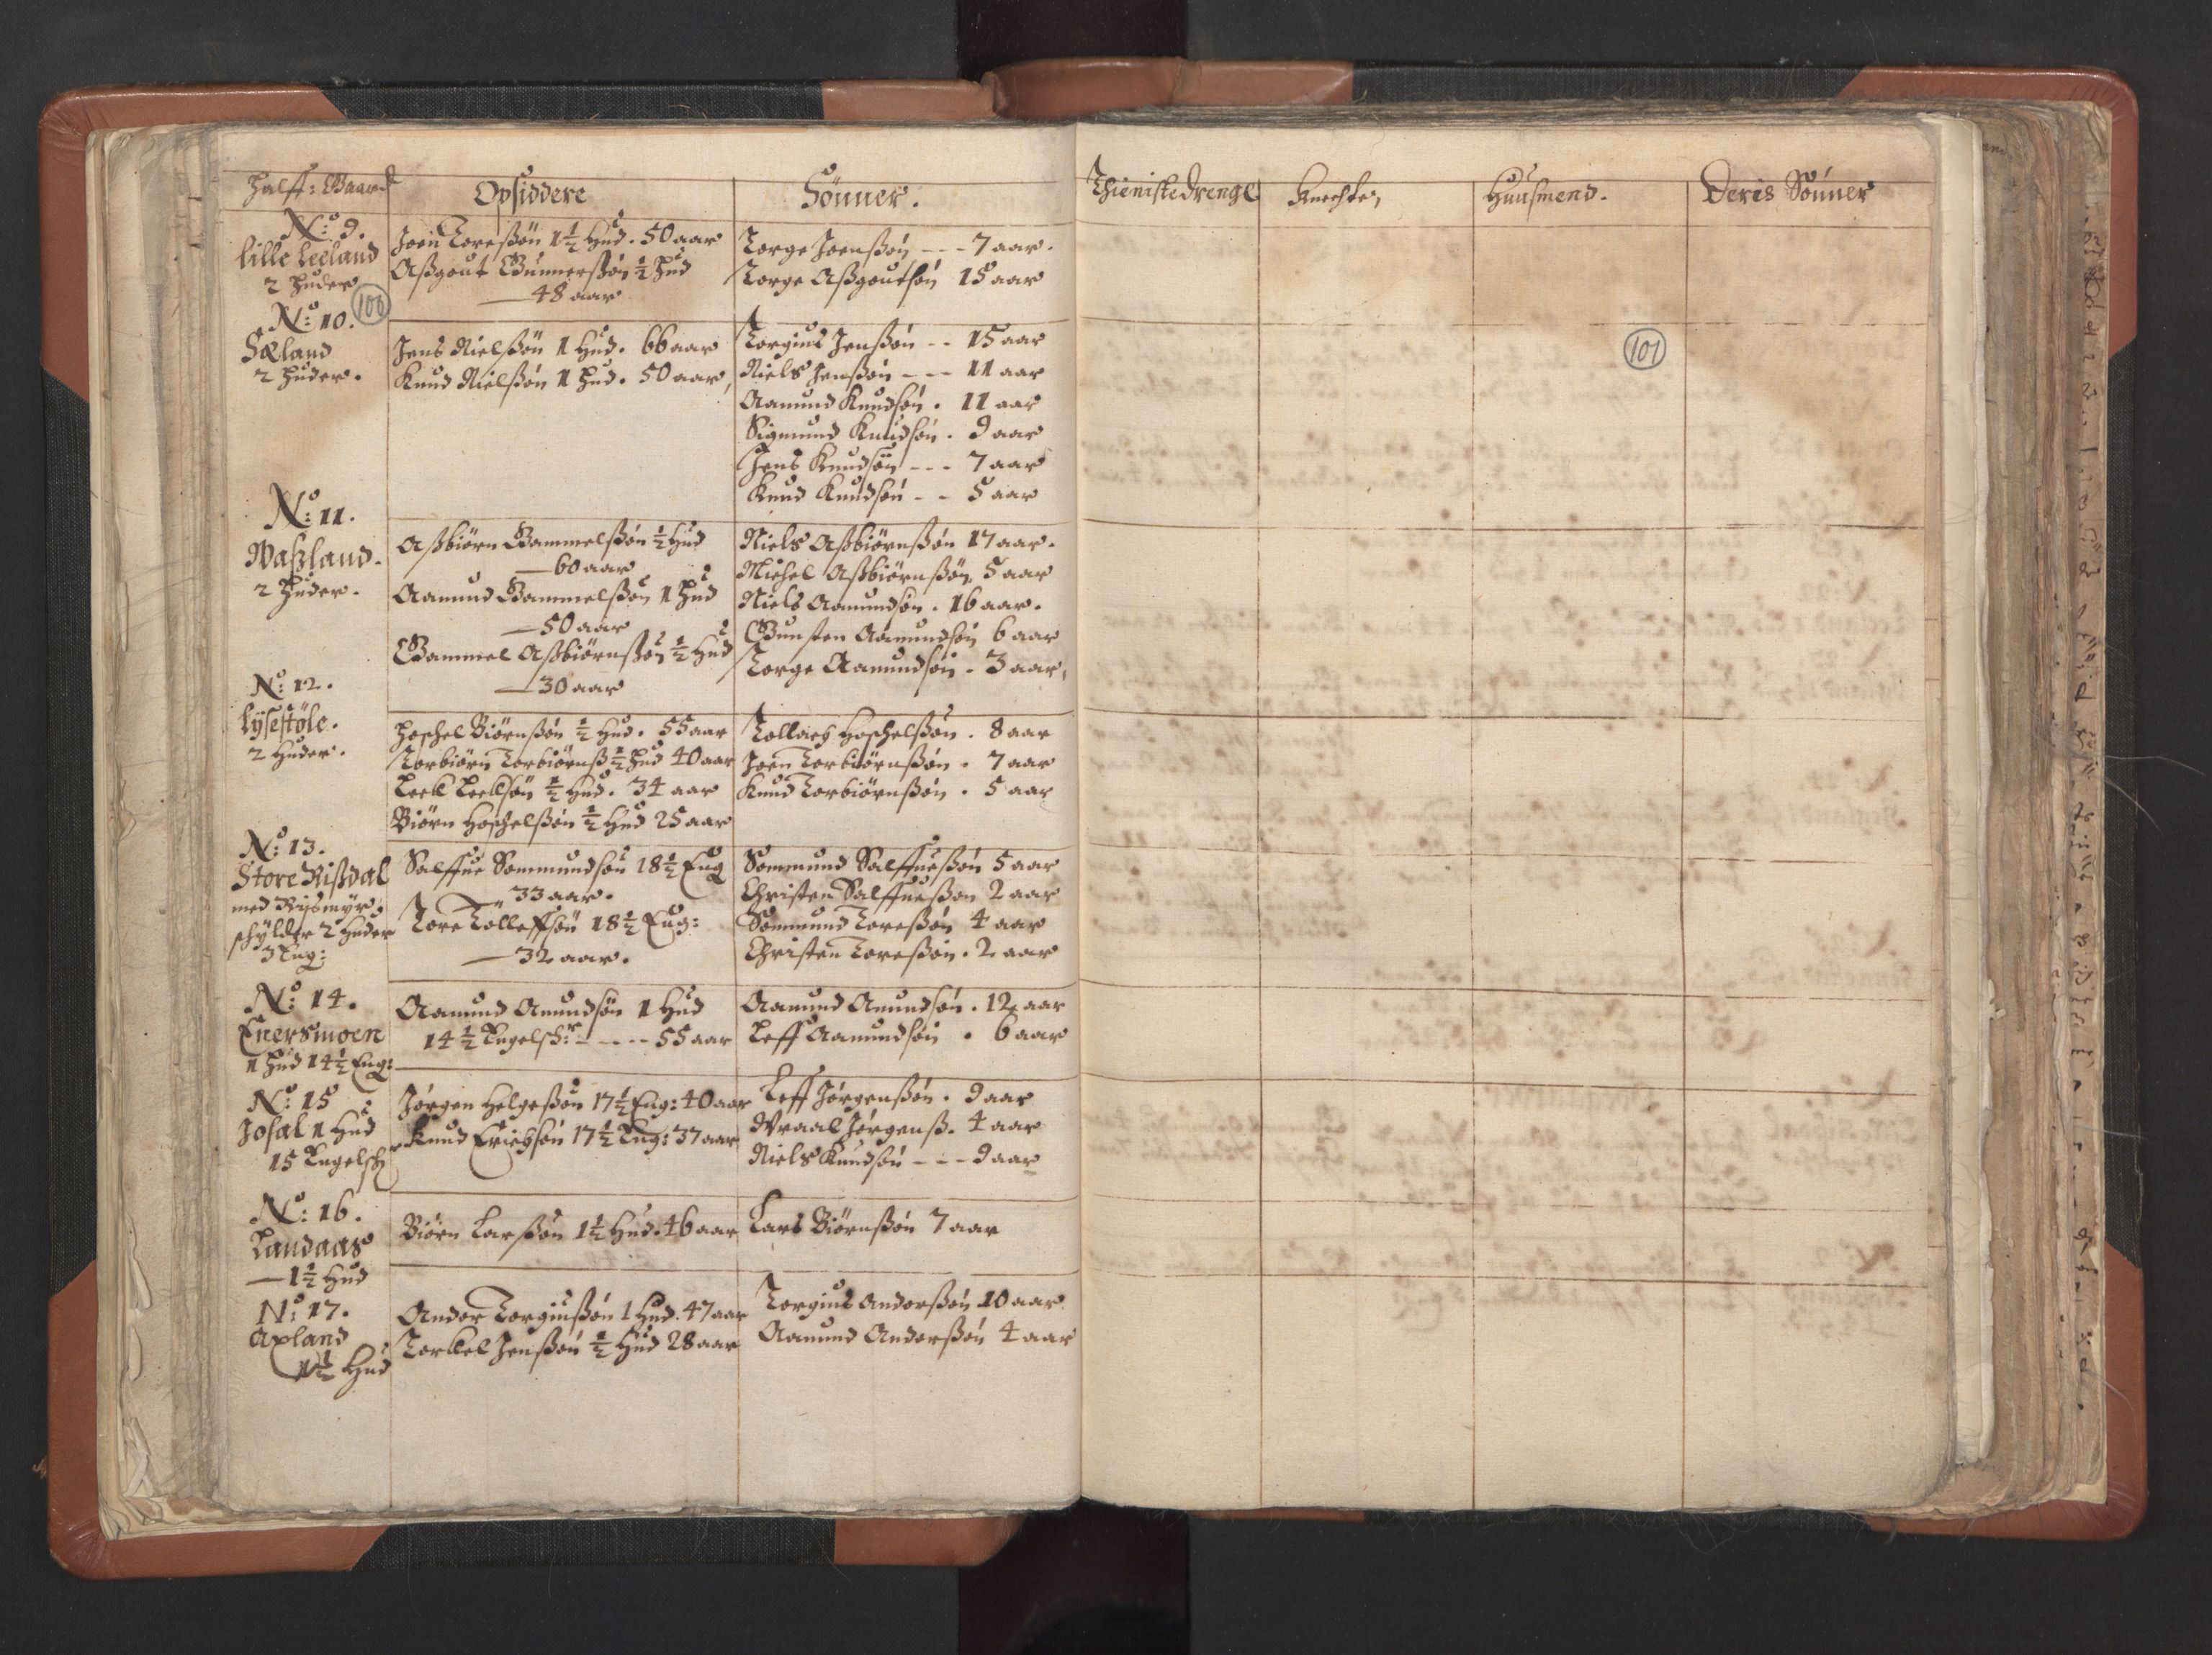 Halff: Gaard
Opsiddere
Sönner.
No: 9.
Lille Leeland
2 Huder
Joen Toresßön 1½ Hud. 50 aar
Aßgout Gunnersßön ½ Hud
— 48 aar
Torge Joensßön - - - 7 aar.
Torge Aßgoutsön 15 aar
100
No: 10.
Sæland
2 Huder.
Jens Nielsßön 1 Hud. 66 aar
Knud Nielsßön 1 Hud. 50 aar,
Torgius Jensßön - - 15 aar
Niels Jensßön - - - 11 aar
Aamund Knudsön. 11 aar
Sigmund Knudsön. 9 aar
Jens Knudsön - - - 7 aar
Knud Knudsön - - 5 aar
No: 11.
Waßland.
2 Huder.
Aßbiörn Gammelsßön ½ Hud
— 60 aar
Aamund Gammelsßön 1 Hud
— 50 aar
Gammel Aßbiörnsßön ½ Hud
— 30 aar
Niels Aßbiörnsßön 17 aar.
Michel Aßbiörnsßön, 5 aar
Niels Aamundsön. 16 aar.
Gunsten Aamundsön 6 aar
Torge Aamundsön. 3 aar,
No: 12.
Lÿsestöle.
2 Huder.
Hoschel Biörnsßön ½ Hud. 55 aar
Torbiörn Torbiörnsß ½ Hud 40 aar
Leel Leelsön ½ Hud. 34 aar
Biörn Hoschelsßön ½ Hud 25 aar
Tollach Hoschelsßön. 8 aar
Joen Torbiörnsßön. 7 aar
Knud Torbiörnsßön. 5 aar
No: 13.
Store Rißdal
med Rijsmÿr.
schÿlder 2 Huder
3 Eng:
Salffue Sommundsön 18½ Eng
— 33 aar.
Tore Tölleffsön 18½ Eng:
— 32 aar.
Sommund Salffuesßön 5 aar
Christen Salffuesßön 2 aar
Sommund Toresßön 4 aar
Christen Toresßön. 2 aar
No: 14.
Enersmoen
1 Hud 14½ Eng:
Aamund Amundsön 1 Hud
14½ Engelschr - - - - 55 aar
Aamund Amundsön. 12 aar
Leff Aamundsön. 6 aar
No: 15
Josal 1 Hud
15 Engelschr
Jörgen Helgesßön 17½ Eng: 40 aar
Knud Erichsön 17½ Eng: 37 aar
Leff Jörgensßön. 9 aar
Wraal Jörgensß. 4 aar
Niels Knudsön - - - 9 aar
No: 16.
Landaas
— 1½ Hud
Biörn Larsßön 1½ Hud. 46 aar
Lars Biörnsßön 7 aar
No: 17.
Axland
1½ Hud
Andor Torgiusßön 1 Hud. 47 aar
Torkel Jensßön ½ Hud 28 aar
Torgius Andorsßön 10 aar
Aamund Andorsßön 4 aar
Thienistedrenge
Knechte,
Huusmend.
Deris Sönner
101